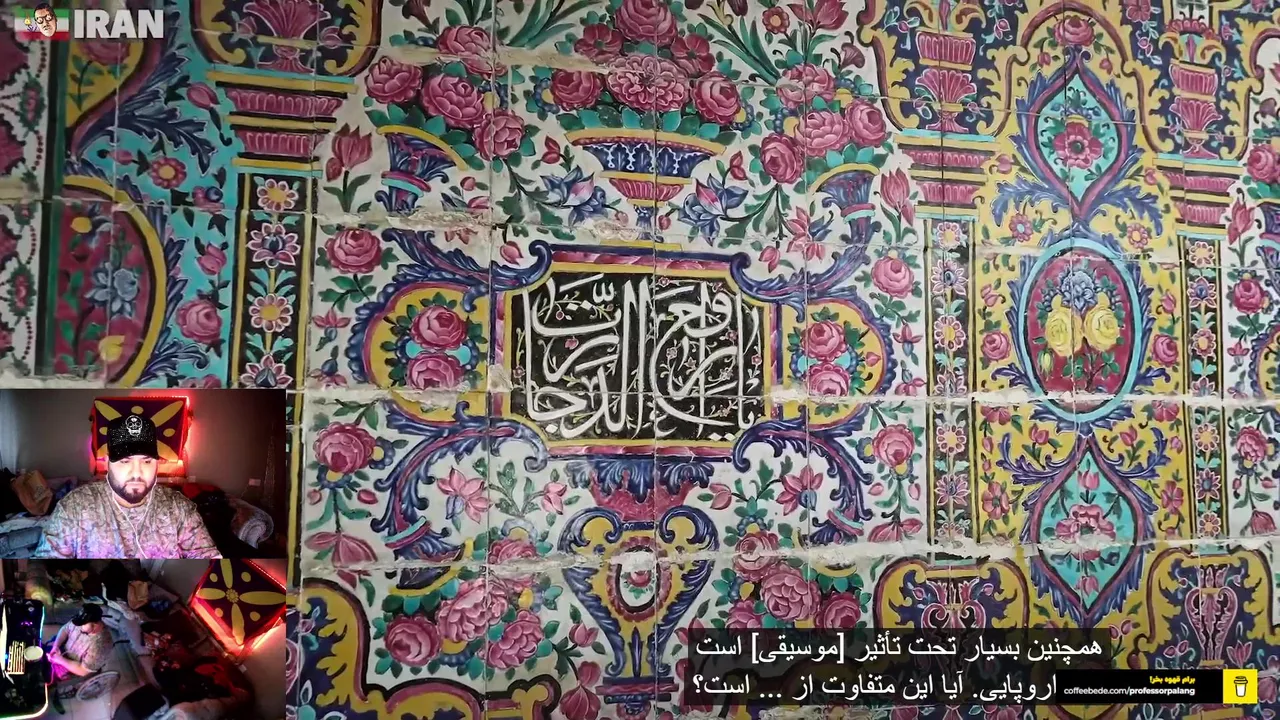 IRAN
یا رافع الدرجات
همچنین بسیار تحت تأثیر [موسیقی] است
اروپایی. آیا این متفاوت از ... است؟
برام قهوه بخر!
coffeebede.com/professorpalang